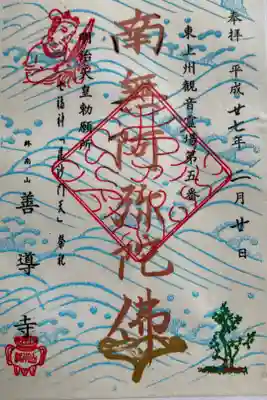 奉拝 平成廿七年 二月廿日
東上州観音霊場第五番
南無阿弥陀佛
明治天皇勅願所
七福神
善導寺